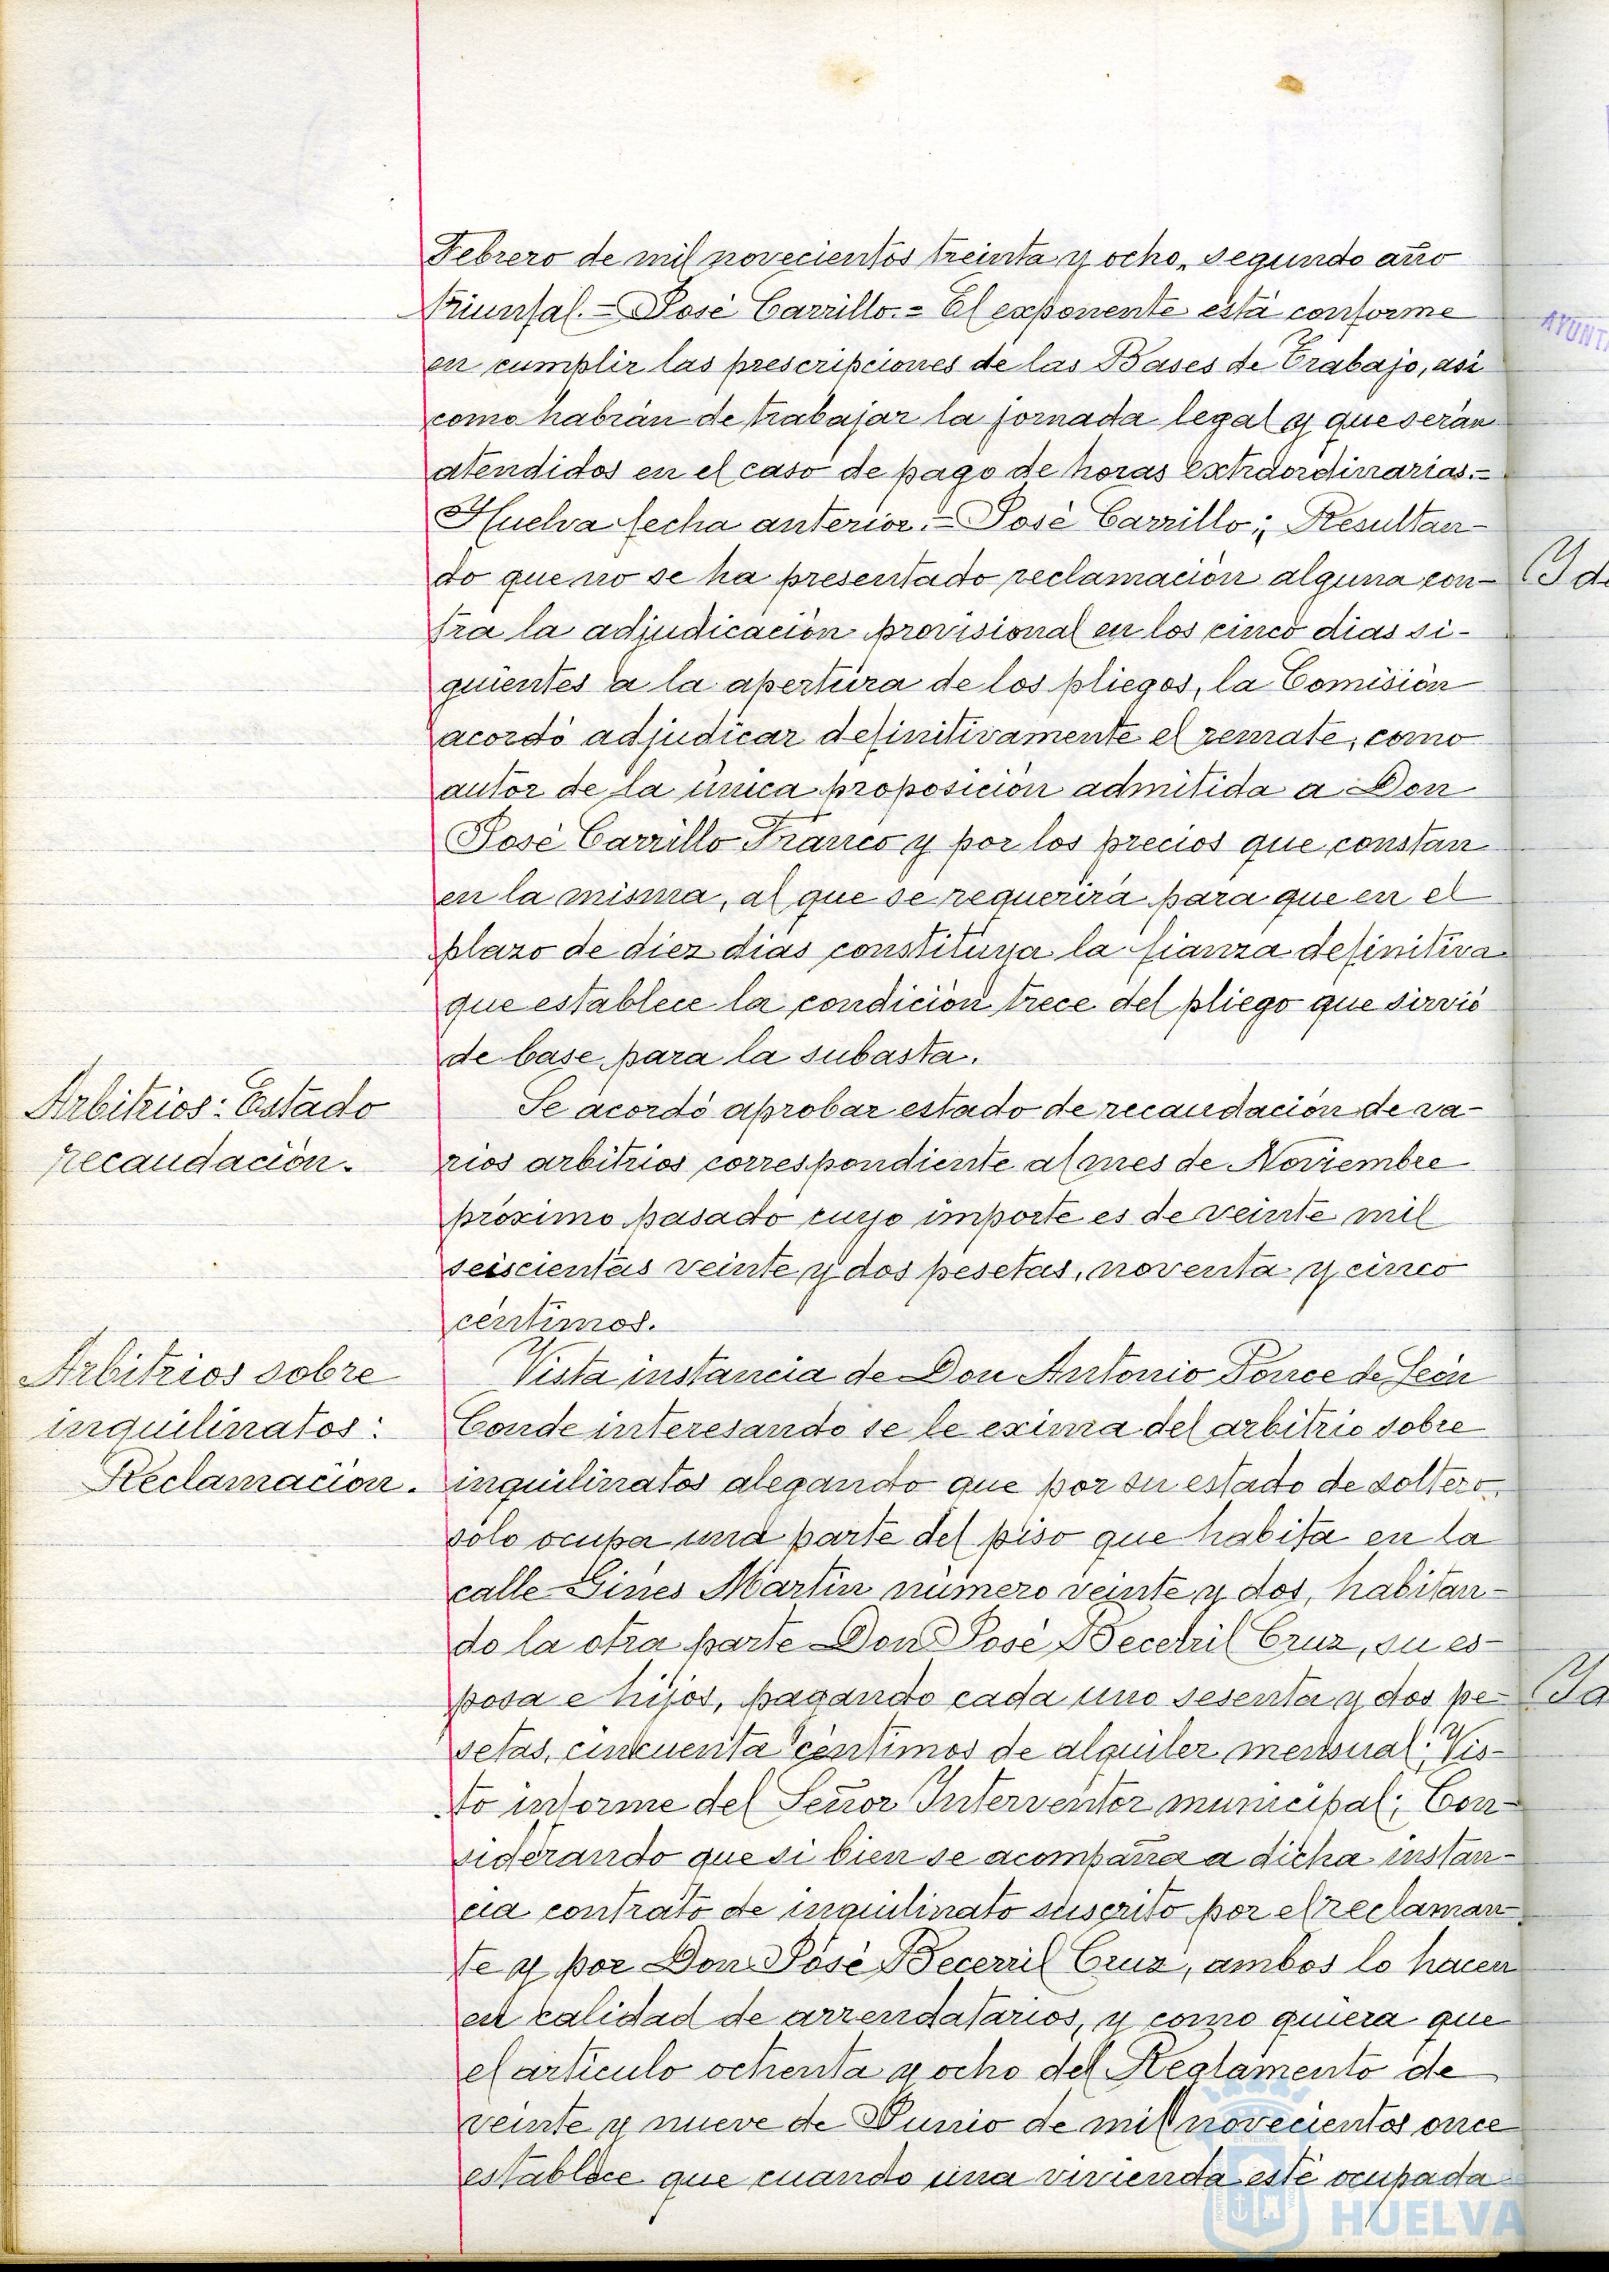 Febrero de mil novecientos treinta y ocho, segundo año
triunfal.= José Carrillo.= El exponente está conforme
en cumplir las prescripciones de las Bases de Trabajo, así
como habrán de trabajar la jornada legal y que serán
atendidos en el caso de pago de horas extraordinarias.=
Huelva fecha anterior.= José Carrillo; Resultan-
do que no se ha presentado reclamación alguna con-
tra la adjudicación provisional en los cinco dias si-
guientes a la apertura de los pliegos, la Comisión
acordó adjudicar definitivamente el remate, como
autor de la única proposición admitida a Don
José Carrillo Franco y por los precios que constan
en la misma, al que se requerirá para que en el
plazo de diez dias constituya la fianza definitiva
que establece la condición trece del pliego que sirvió
de base para la subasta.
Arbitrios: Estado
recaudación.
Se acordó aprobar estado de recaudación de va-
rios arbitrios correspondiente al mes de Noviembre
próximo pasado cuyo importe es de veinte mil
seiscientas veinte y dos pesetas, noventa y cinco
céntimos.
Arbitrios sobre
inquilinatos:
Reclamación.
Vista instancia de Don Antonio Ponce de León
Conde interesando se le exima del arbitrio sobre
inquilinatos alegando que por su estado de soltero,
sólo ocupa una parte del piso que habita en la
calle Ginés Martín número veinte y dos, habitan-
do la otra parte Don José Becerril Cruz, su es-
posa e hijos, pagando cada uno sesenta y dos pe-
setas, cincuenta céntimos de alquiler mensual; Vis-
to informe del Señor Interventor municipal; Con-
siderando que si bien se acompaña a dicha instan-
cia contrato de inquilinato suscrito por el reclaman-
te y por Don José Becerril Cruz, ambos lo hacen
en calidad de arrendatarios, y como quiera que
el artículo ochenta y ocho del Reglamento de
veinte y nueve de Junio de mil novecientos once
establece que cuando una vivienda esté ocupada
HUELVA
AYUNT